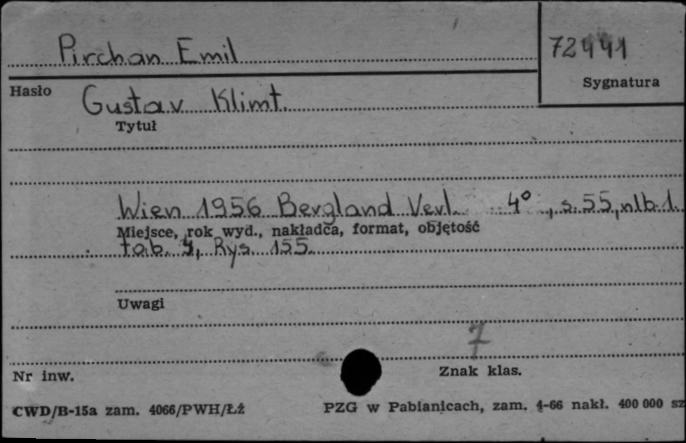 Pirchan Emil
72441
Hasło
Sygnatura
Gustav Klimt.
Tytuł
Wien 1956 Bergland Verl. 4°, s. 55, nlb. 1.
Miejsce, rok wyd., nakładca, format, objętość
tab. 4, Rys 155.
Uwagi
7
Nr inw.
Znak klas.
CWD/B-15a zam. 4066/PWH/Łź
PZG w Pabianicach, zam. 4-66 nakł. 400 000 sz